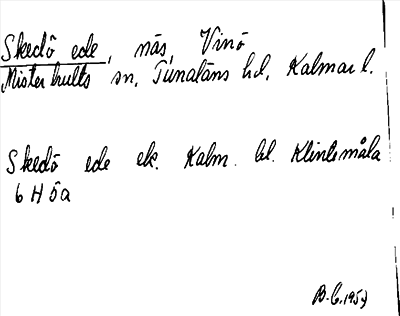 Skedö ede, näs, Vinö
Misterhults sn, Tunaläns hd, Kalmar l.
Skedö ede ek. Kalm. bl. Klintemåla
6 H öa
B.C. 1957